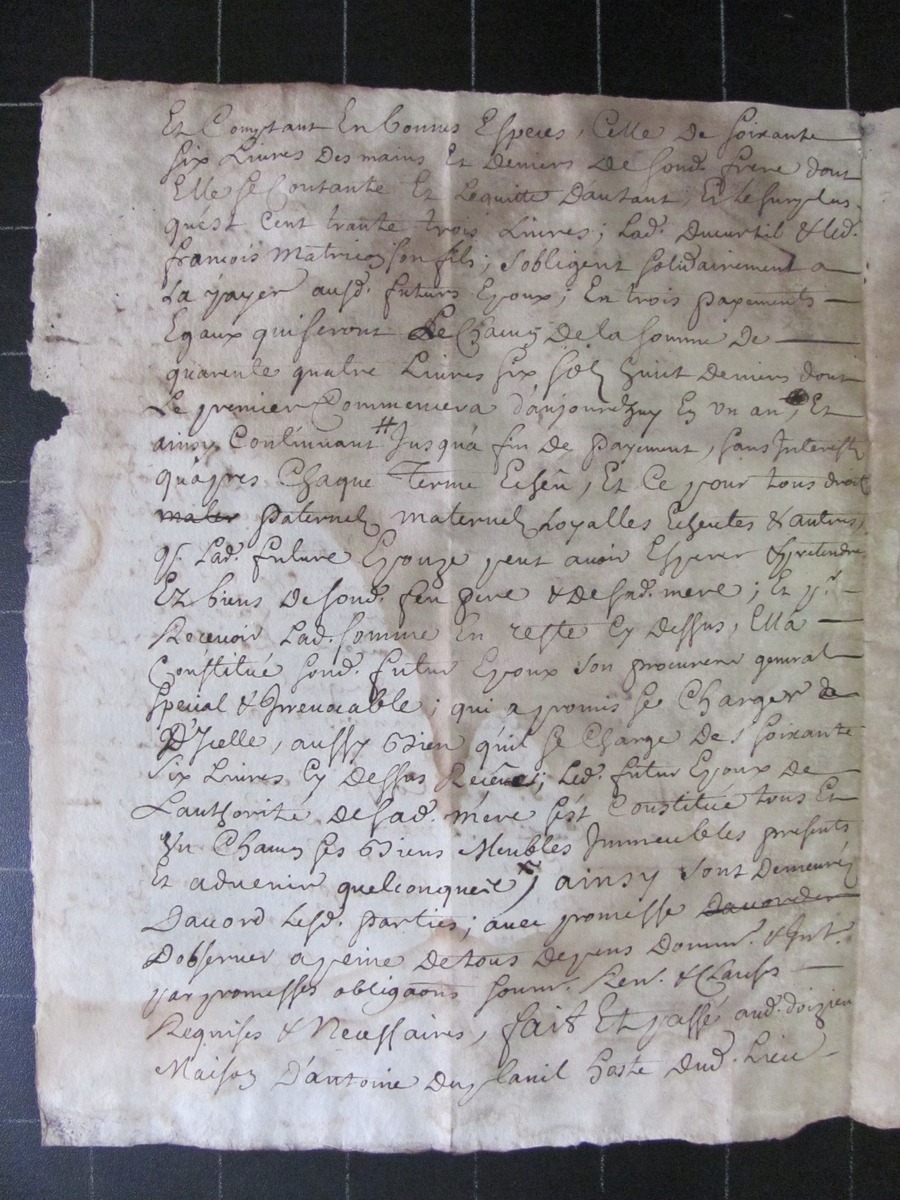 Et Comptant En bonnes Especes, Celle de soixante
six Livres des mains Et deniers de sond. frere dont
Elle se Contante Et Lequitte dautant; Et Le surplus
qu'est cent trante trois Livres; Lad. ducurtil & led.
françois matricon son fils; sobligent solidairement a
La payer ausd. futurs Epoux; En trois payements
Egaux qui seront de Chacun de la somme de
quarente quatre Livres six sols huit deniers dont
Le premier Commencera d'aujourdhuy En un an, Et
ainsy Continuant Jusqua fin de payement, sans Interest
qu'apres Chaque Terme Escheu, Et Ce pour tous droits
mater paternels maternels Loyalles Escheutes & autres,
q. Lad. future Epouze peut avoir Esperer & pretendre
Ez biens de sond. feu pere & de sad. mere; Et pr.
Recevoir Lad. somme En reste Cy dessus, Ella
Constitué sond. futur Epoux son procureur general
special & Irrevocable; qui a promis se Charger de
D'Icelle, aussy bien qu'il se Charge des soixante
six Livres Cy dessus Receues; Led. futur Epoux de
Lauthorité de sad. mere s'est Constitué tous Et
Un Chacun ses biens Meubles Immeubles presents
Et advenir quelconques; ainsy sont demeurés
daccord Lesd. parties; avec promesse daccorder
d'observer a peine de tous depens domm. & Int.
par promesses obligaons soum. Ren. & Clauses
Requises & Necessaires, fait Et passé aud. doizieu
Maison d'antoine du hoste dud. Lieu